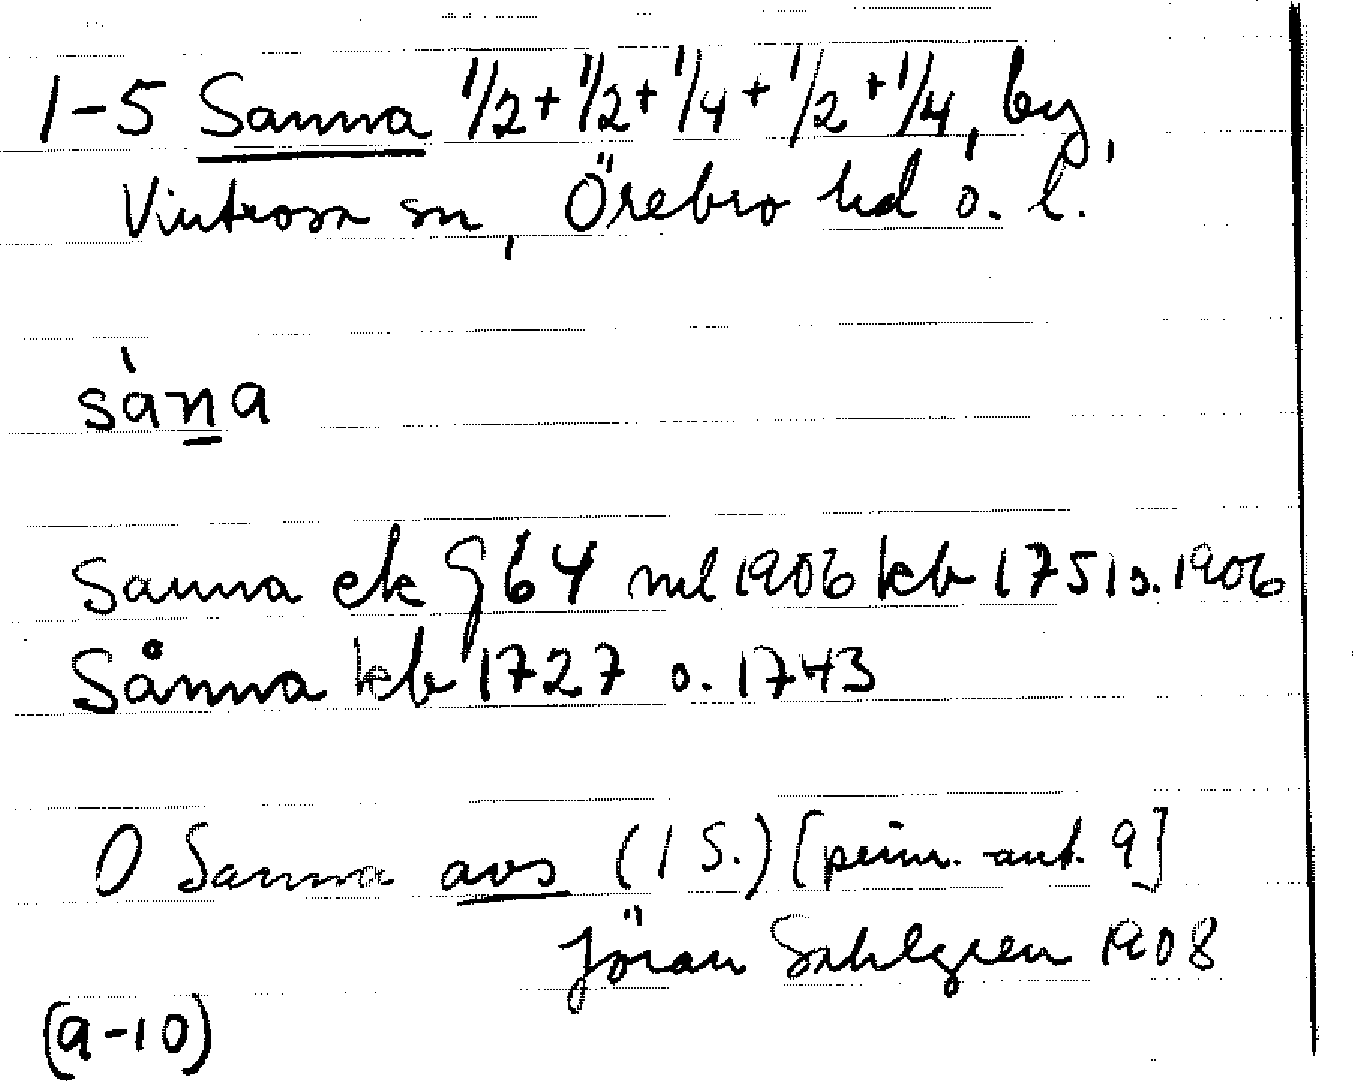 1-5 Sanna 1/2+1/2+1/4+1/2+1/4, by,
Vintrosa sn, Örebro hd ö. l.
sàna
Sanna ek G64 ml 1906 kb 1751 o. 1906
Sånna kb 1727 o. 1743
O Sanna avs (1 S.) [prim.-ant. 9]
Jöran Sahlgren 1908
(9-10)